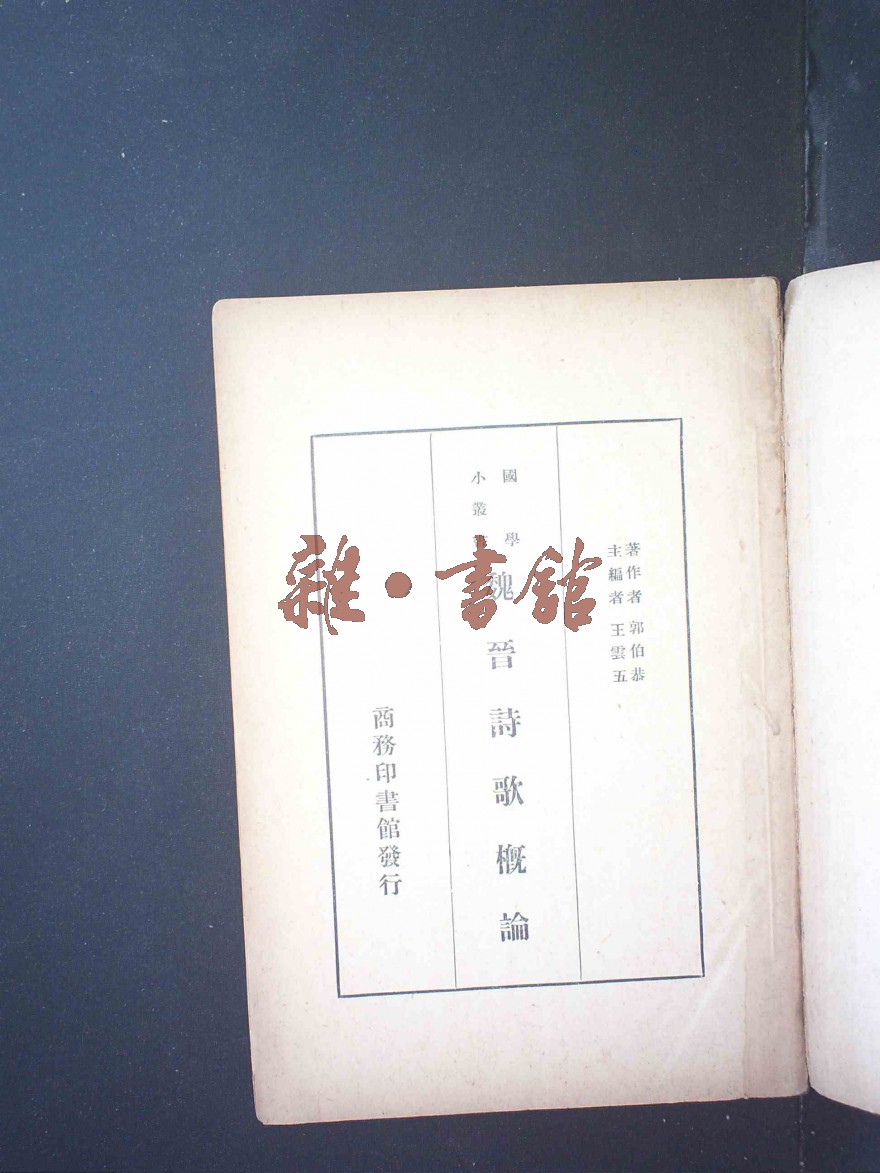 著作者 郭伯恭
主編者 王雲五
國學
小叢
魏晉詩歌概論
商務印書館發行
雜·書館